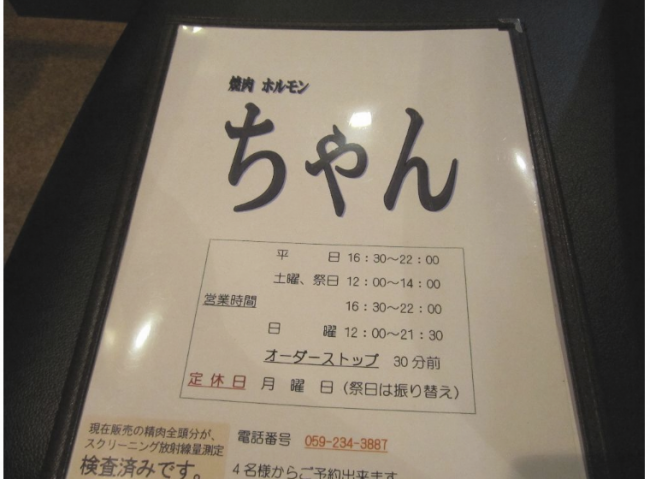 焼肉 ホルモン
ちゃん
平 日 16：30～22：00
土曜、祭日 12：00～14：00
営業時間 16：30～22：00
日 曜 12：00～21：30
オーダーストップ 30分前
定休日 月 曜 日（祭日は振り替え）
現在販売の精肉全頭分が、
スクリーニング放射線量測定
検査済みです。
電話番号 059-234-3887
4名様からご予約出来ます